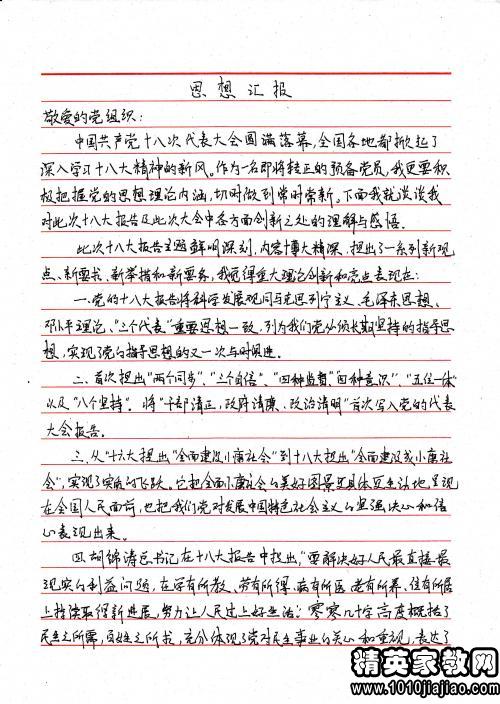 思想汇报
敬爱的党组织：
中国共产党十八次代表大会圆满落幕，全国各地都掀起了
深入学习十八大精神的新风。作为一名即将转正的预备党员，我更要积
极把握党的思想理论内涵，切时做到常时常新。下面我就谈谈我
对此次十八大报告及此次大会中各方面创新之处的理解与感悟。
此次十八大报告主题鲜明深刻，内容博大精深，提出了一系列新观
点、新要书、新举措和新要务，我觉得重大理论创新和亮点表现在：
一．党的十八大报告将科学发展观同马克思列宁主义、毛泽东思想、
邓小平理论、"三个代表"重要思想一致，列为我们党必须长期坚持的指导思
想，实现了党的指导思想的又一次与时俱进。
二．首次提出"两个同步"、"三个自信"、"四种监督"、"四种意识"、"五位一体"
以及"八个坚持"。将"干部清正，政府清廉，政治清明"首次写入党的代表
大会报告。
三．从"十六大提出"全面建设小康社会"到十八大提出"全面建成小康社
会"，实现了实质的飞跃，它把全面小康社会的美好图景更具体更生动地呈现
在全国人民面前，也把我们党对发展中国特色社会主义的坚强决心和信
心表现出来。
四．胡锦涛总书记在十八大报告中提出，"要解决好人民最直接最
现实的利益问题，在学有所教、劳有所得、病有所医、老有所养、住有所居
上持续取得新进展，努力让人民过上好生活"。寥寥几十字高度概括了
民生之所需，百姓之所求，充分体现了党对民生事业的关心和重视，表达了
精英家教网
www.1010jiajiao.com